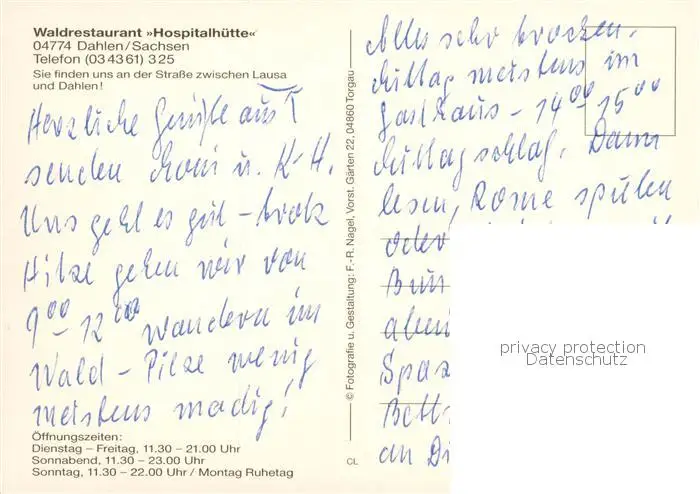 Waldrestaurant »Hospitalhütte«
04774 Dahlen/Sachsen
Telefon (03 43 61) 3 25
Sie finden uns an der Straße zwischen Lausa
und Dahlen!
Herzliche Grüße aus T
senden u. K-H.
Uns geht es gut – trotz
Hitze gehen wir von
9⁰⁰ – 12⁰⁰ wandern im
Wald – Pilze wenig
meistens madig!
Öffnungszeiten:
Dienstag – Freitag, 11.30 - 21.00 Uhr
Sonnabend, 11.30 - 23.00 Uhr
Sonntag, 11.30 - 22.00 Uhr / Montag Ruhetag
© Fotografie u. Gestaltung: F.-R. Nagel, Vorst. Gärten 22, 04860 Torgau
CL
Alles sehr trocken.
Mittag meistens im
Gasthaus – 14⁰⁰ 15⁰⁰
Mittagschlaf. Dann
lesen, Rome spielen
oder
Bun
aben
Spaz
Bett
an Di
privacy protection
Datenschutz